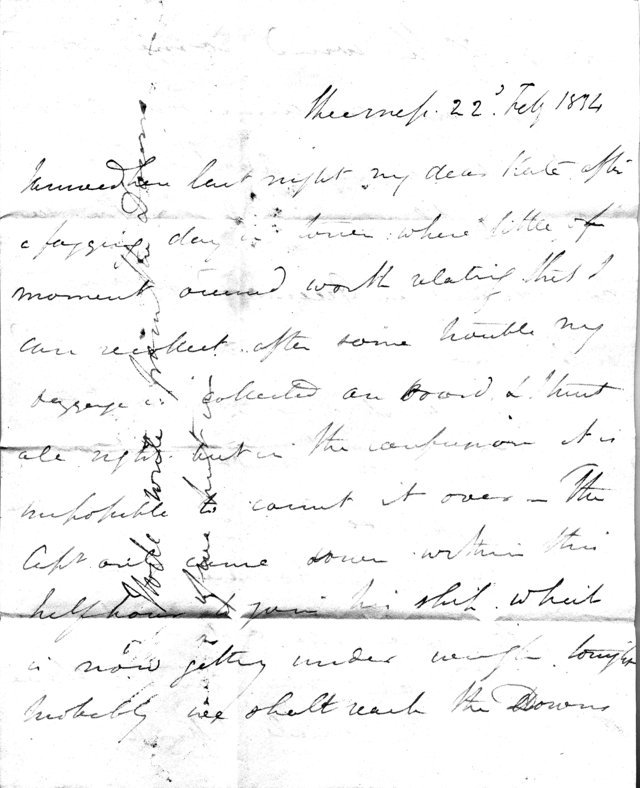 Sheerness. 22ᵈ Feby 1834
I arrived here last night my dear Kate after
a fagging day in town where little of
moment occured worth relating that I
can recollect. after some trouble my
baggage is collected on board & I trust
all right but in the confusion it is
impossible to count it over – The
Capt only came down within this
half hour to join his ship which
is now getting under weigh. tonight
probably we shall reach the Downs
I shall write from the Downs
if we put in